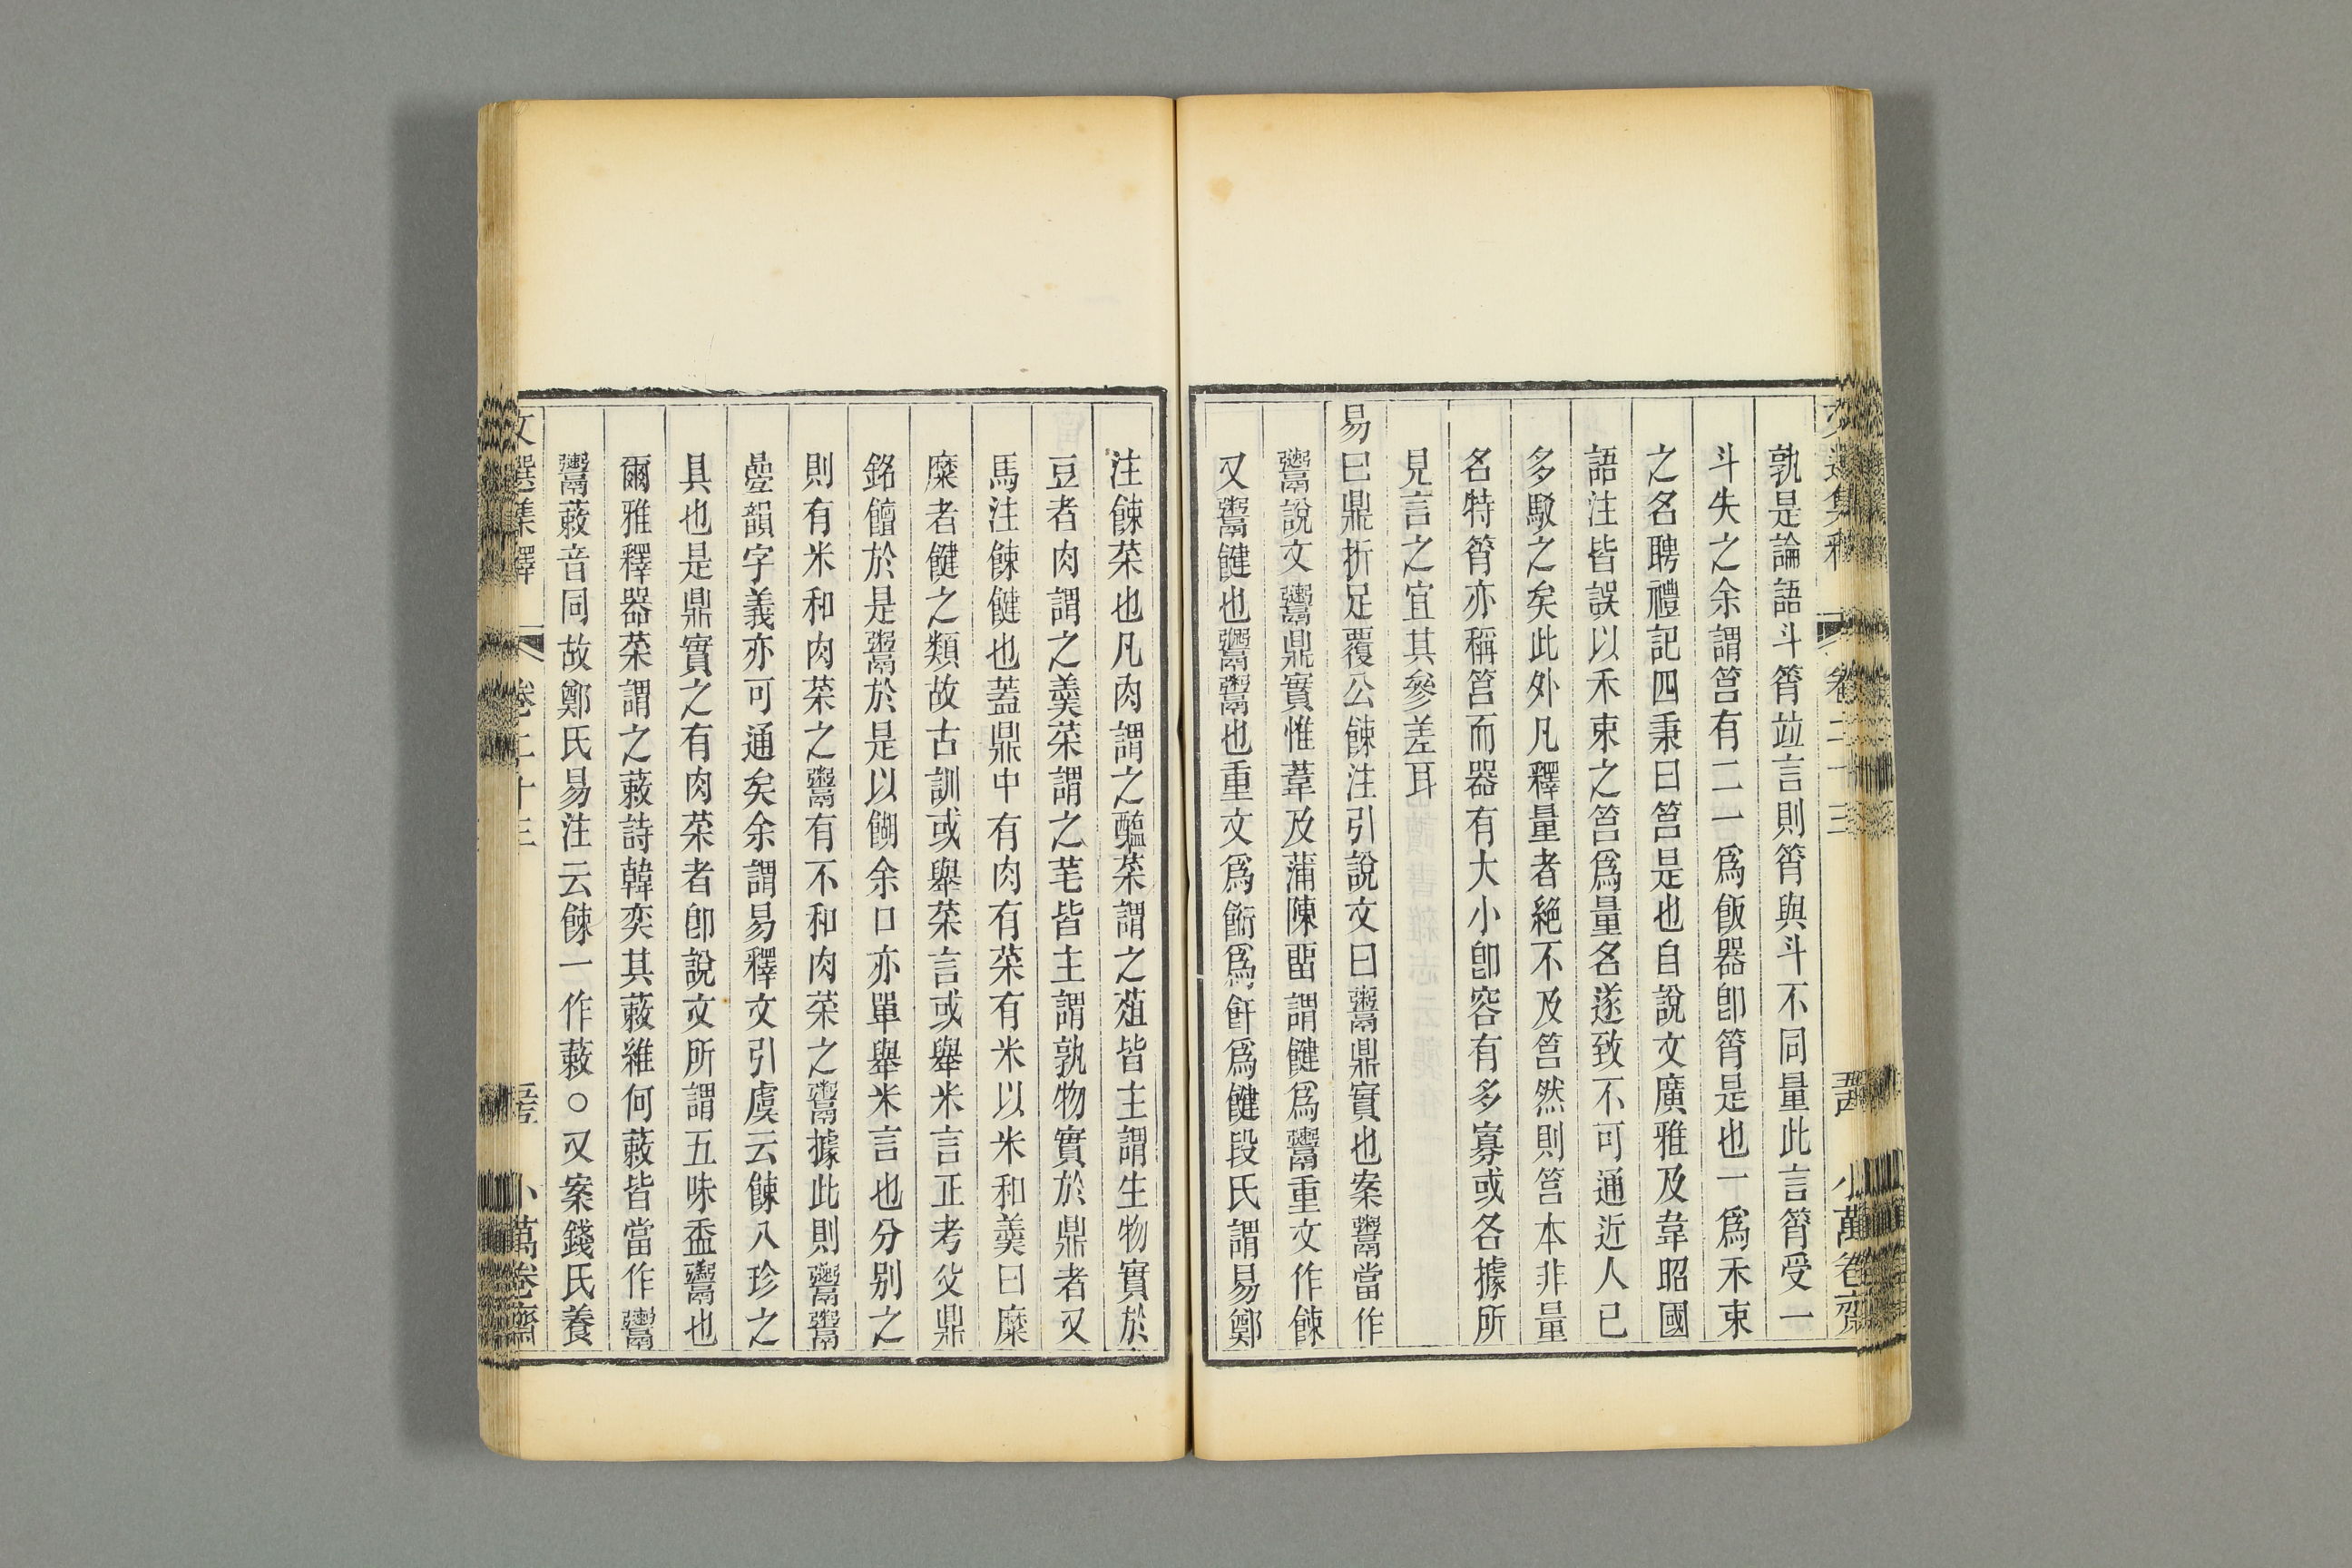 文選集釋 卷二十三 小萬卷齋
孰是論語斗筲竝言則筲與斗不同量此言筲受一
斗失之余謂筥有二一爲飯器卽筲是也一爲禾束
之名聘禮記四秉曰筥是也自說文廣雅及韋昭國
語注皆誤以禾束之筥爲量名遂致不可通近人已
多駁之矣此外凡釋量者絶不及筥然則筥本非量
名特筲亦稱筥而器有大小卽容有多寡或各據所
見言之宜其參差耳
易曰鼎折足覆公餗注引說文曰鬻鼎實也案鬻當作
𩱧說文𩱧鼎實惟葦及蒲陳畱謂䭈爲𩱧重文作餗
又鬻䭈也鬻鬻也重文爲䬾爲飦爲䭈段氏謂易鄭
注餗菜也凡肉謂之醢菜謂之菹皆主謂生物實於
豆者肉謂之羹菜謂之芼皆主謂孰物實於鼎者又
馬注餗䭈也蓋鼎中有肉有菜有米以米和羹曰糜
糜者䭈之類故古訓或舉菜言或舉米言正考父鼎
銘饘於是鬻於是以餬余口亦單舉米言也分别之
則有米和肉菜之𩱧有不和肉菜之𩱧據此則鬻鬻
疊韻字義亦可通矣余謂易釋文引虞云餗八珍之
具也是鼎實之有肉菜者卽說文所謂五味盉𩱧也
爾雅釋器菜謂之蔌詩韓奕其蔌維何蔌皆當作𩱧
𩱧蔌音同故鄭氏易注云餗一作蔌○又案錢氏養
文選集釋 卷二十三 小萬卷齋